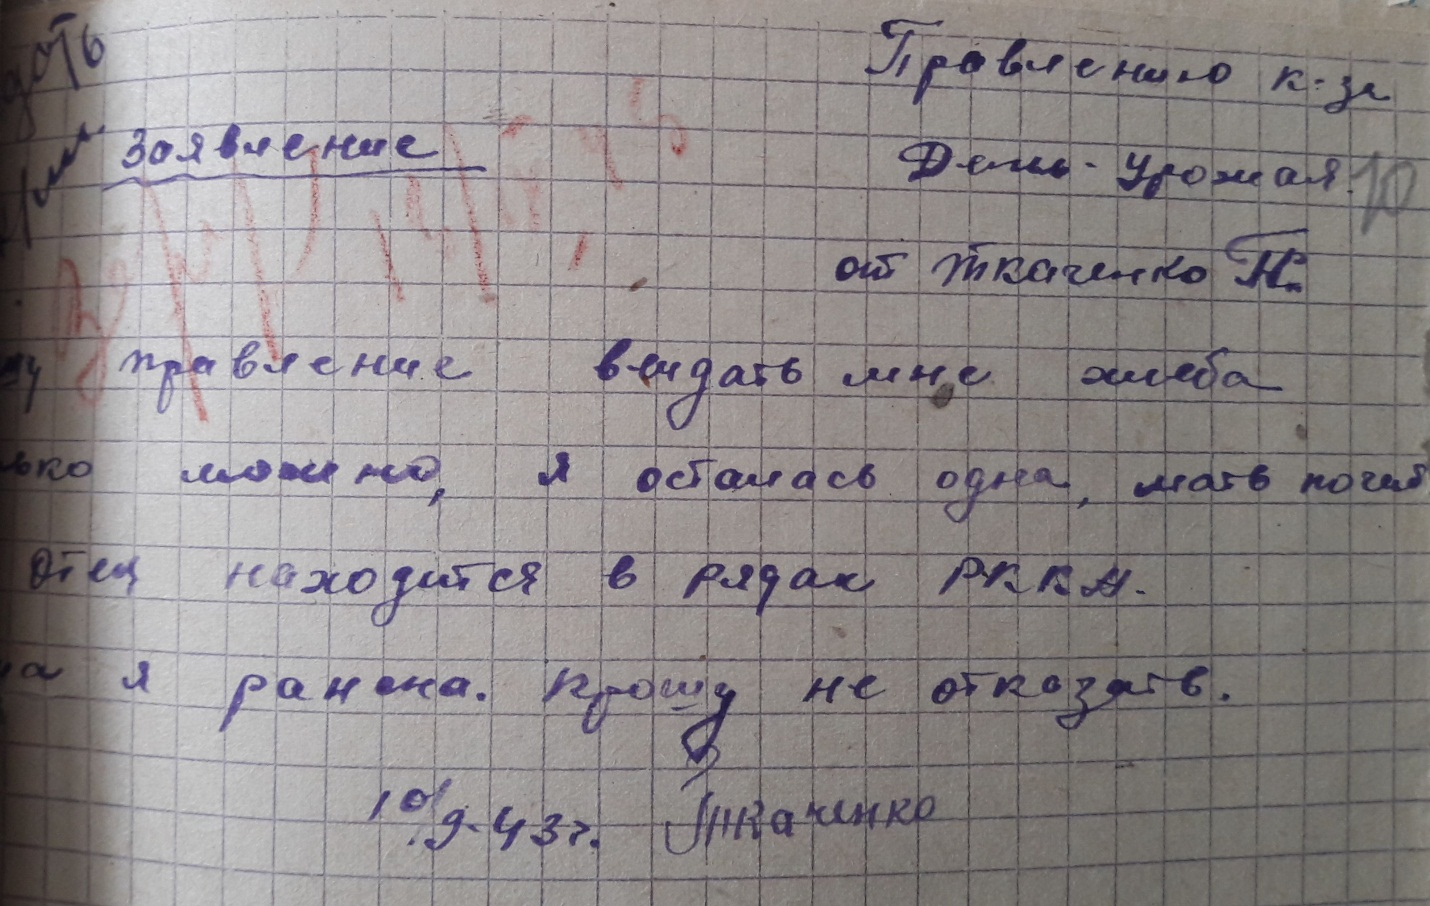 дать
Правлению к-за
Заявление
День-Урожая.
10
от Ткаченко Н.
правление выдать мне хлеба
можно, я осталась одна, мать погиб
Отец находится в рядах РККА.
я ранена. Прошу не отказать.
10/9-43г. Ткаченко